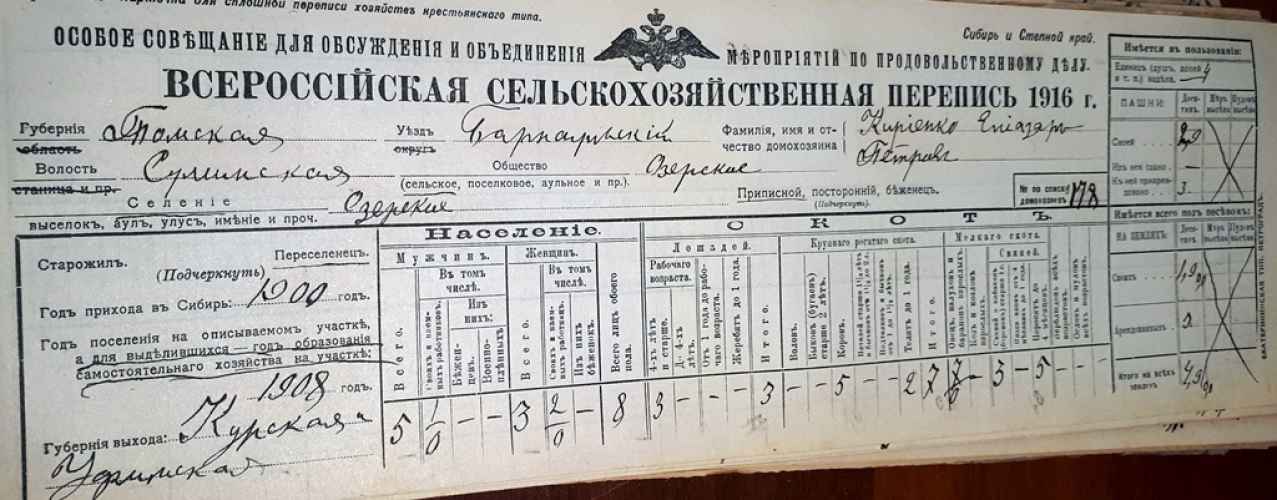 для сплошной переписи хозяйствъ крестьянскаго типа.
Сибирь и Степной край.
ОСОБОЕ СОВѢЩАНІЕ ДЛЯ ОБСУЖДЕНІЯ И ОБЪЕДИНЕНІЯ МѢРОПРІЯТІЙ ПО ПРОДОВОЛЬСТВЕННОМУ ДѢЛУ.
ВСЕРОССІЙСКАЯ СЕЛЬСКОХОЗЯЙСТВЕННАЯ ПЕРЕПИСЬ 1916 г.
Губернія Томская Уѣздъ Барнаульскій Фамилія, имя и от-
область округъ чество домохозяина
Киріенко Еліазаръ
Петровъ
Волость Сузунская Общество Озерское
станица и пр. (сельское, поселковое, аульное и пр.). Приписной, посторонній, бѣженецъ.
(Подчеркнуть).
№ по списку домохозяевъ 178
Селеніе Озерское
выселокъ, аулъ, улусъ, имѣніе и проч.
Старожилъ. Переселенецъ.
(Подчеркнуть)
Годъ прихода въ Сибирь: 1900 годъ.
Годъ поселенія на описываемомъ участкѣ,
а для выдѣлившихся — годъ образованія
самостоятельнаго хозяйства на участкѣ:
1908 годъ.
Губернія выхода: Курская
Населеніе.
Мужчинъ. Женщинъ.
Въ томъ числѣ. Въ томъ числѣ.
Изъ нихъ:
Всего.
Своихъ и наемныхъ работниковъ.
Бѣженцевъ.
Военноплѣнныхъ
Всего.
Своихъ и наемныхъ работницъ.
Изъ нихъ бѣженокъ.
Всего лицъ обоего пола.
СКОТЪ.
Лошадей. Крупнаго рогатаго скота. Мелкаго скота.
Рабочаго возраста. Свиней.
4-хъ лѣтъ и старше.
До 4-хъ лѣтъ.
Отъ 1 года до рабочаго возраста.
Жеребятъ до 1 года.
Итого.
Воловъ.
Быковъ (бугаевъ) старше 2 лѣтъ.
Коровъ.
Телятъ до 1 года.
Итого.
5 1/0 - - 3 2/0 - 8 3 - - - 3 - - 5 - - 2 7 - 3 - 5 - -
Имѣется въ пользованіи:
Единицъ (душъ, долей
и т. п.) надѣла. 4
ПАШНИ: Десятинъ.
Своей
Изъ нея сдано —
Къ ней приарендовано 3
Имѣется всего подъ посѣвомъ:
НА ЗЕМЛЯХЪ: Десятинъ.
Своихъ
Арендованныхъ
Итого на всѣхъ земляхъ
ЕКАТЕРИНГОФСКАЯ ТИП. ПЕТРОГРАДЪ.